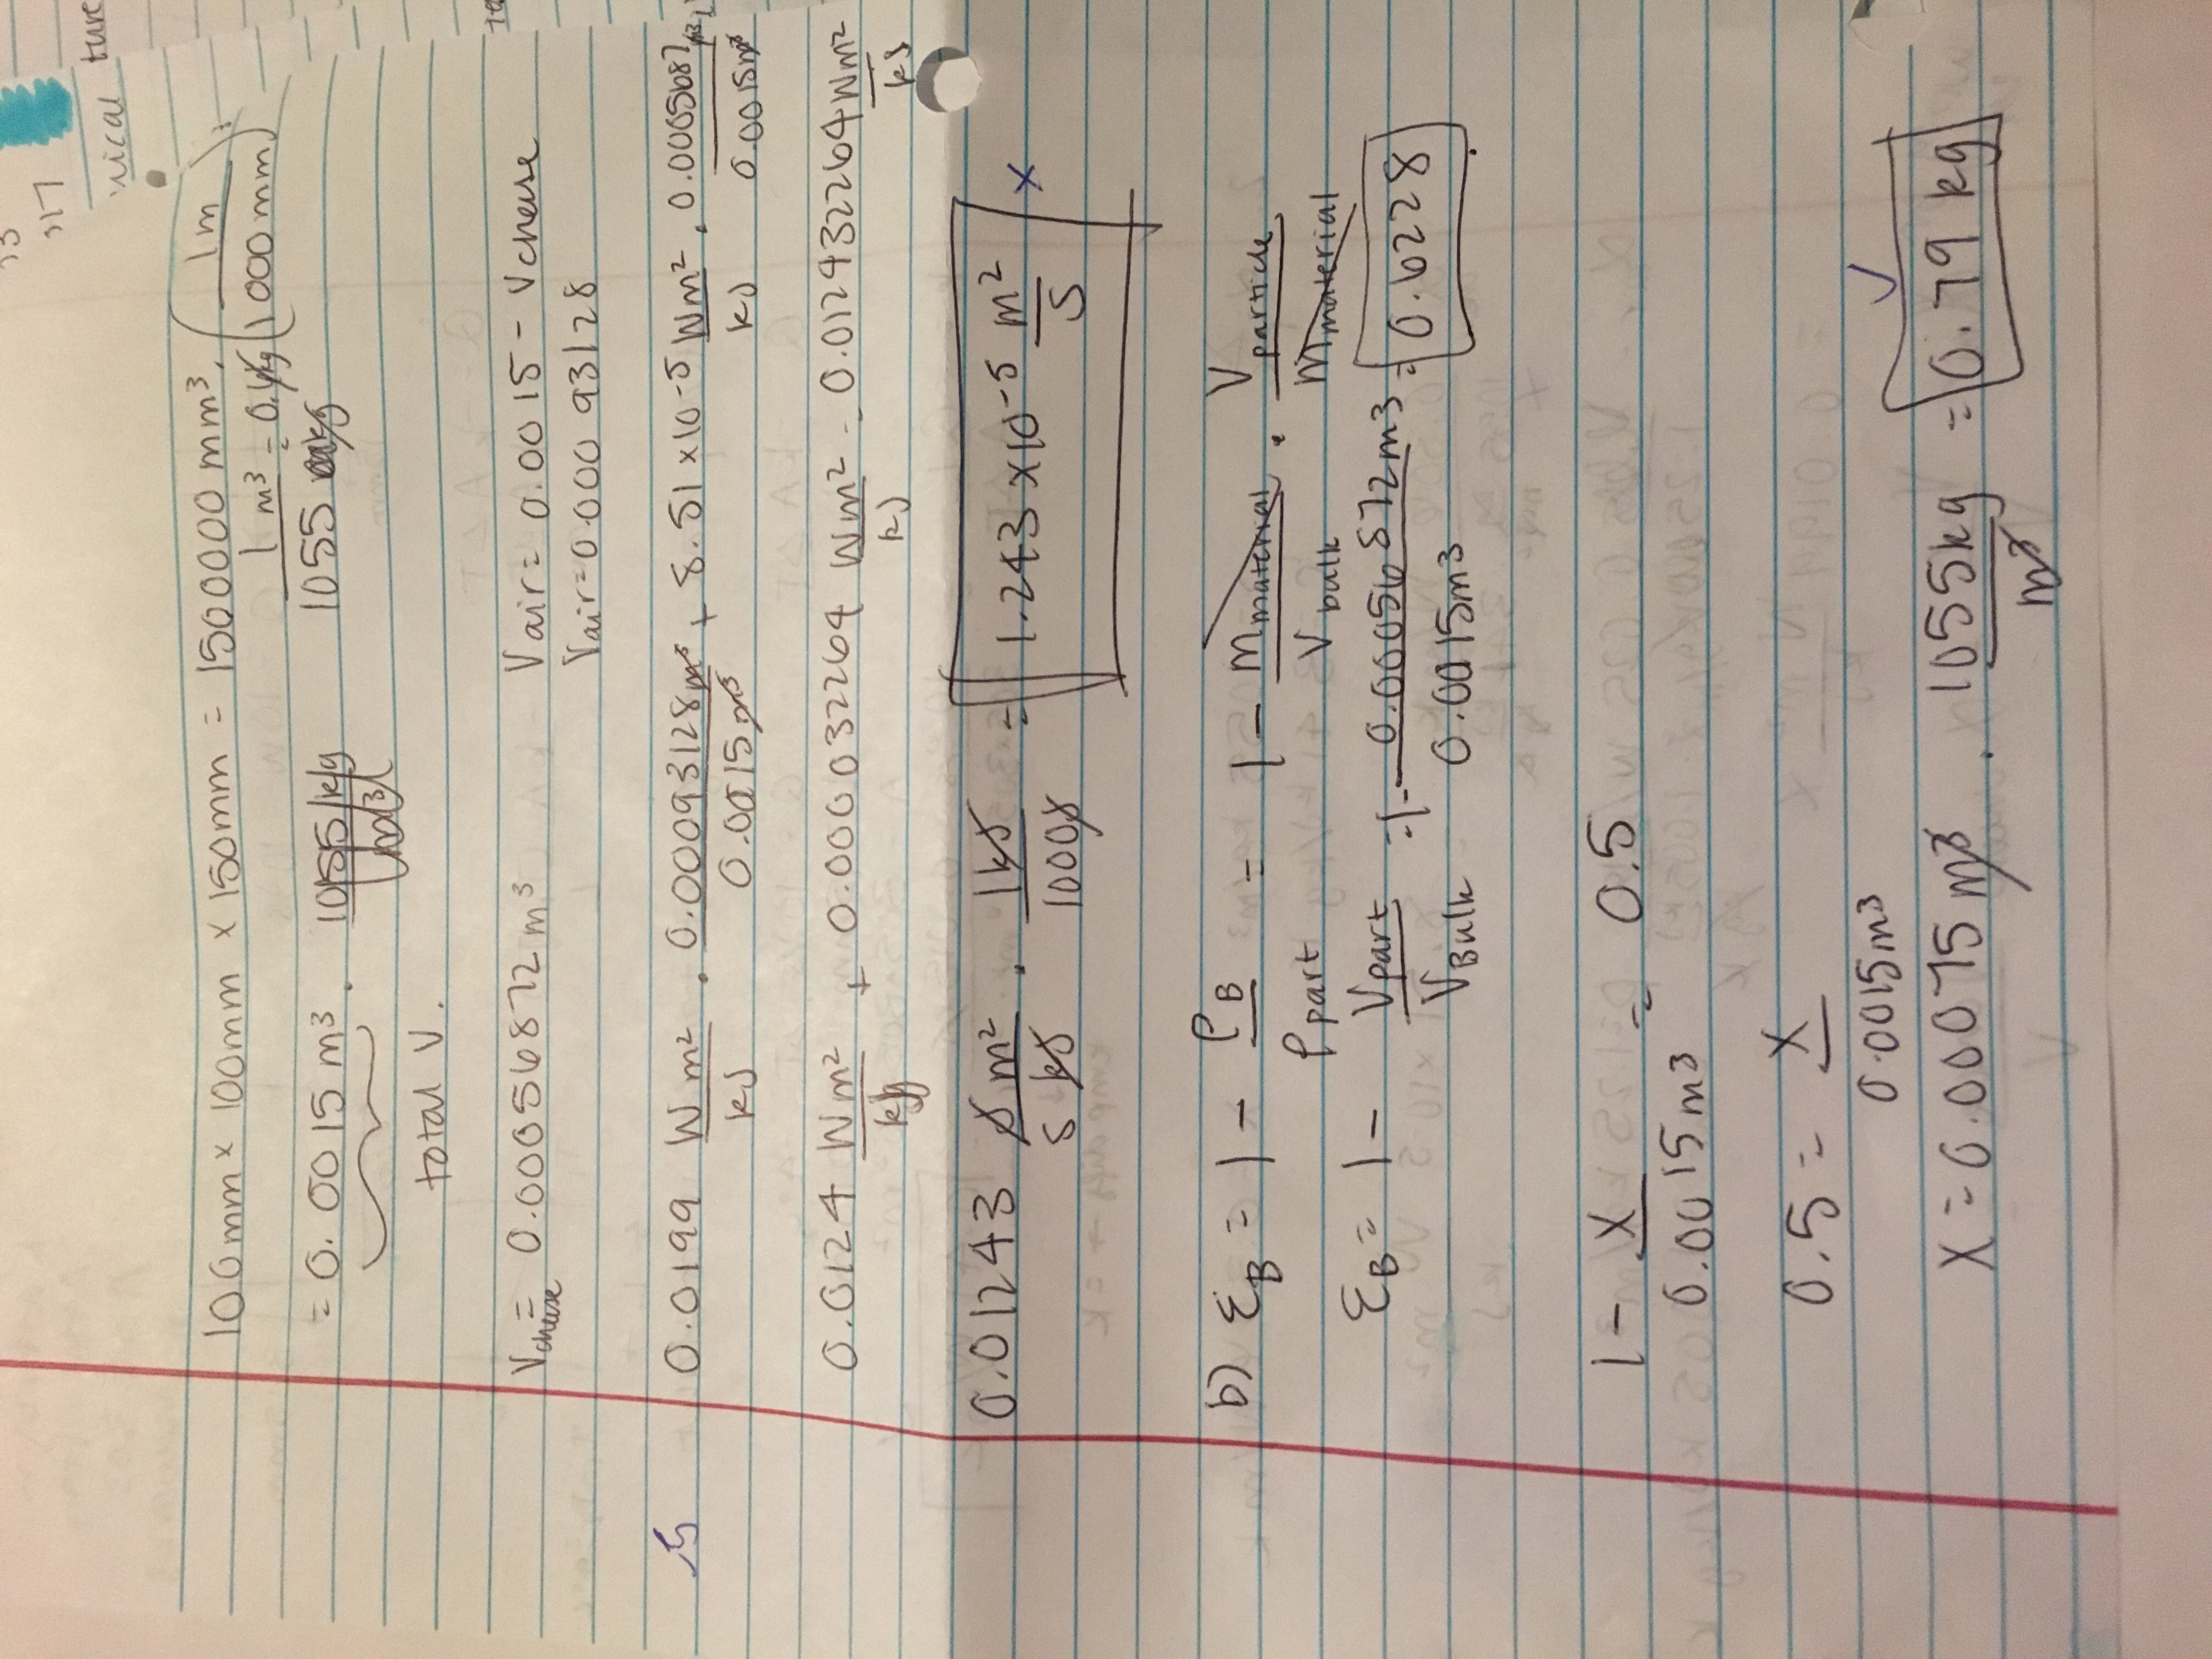 317
nical ture
100mm × 100mm × 150mm = 1500000 mm³. (1m / 1000mm)³
= 0.0015 m³ . 1055 kg / m³
1 m³ / 1055 kg = 0.6kg
total V.
Vcheese = 0.00056872 m³
Vair = 0.0015 - Vcheese
Vair = 0.00093128
0.0199 Wm²/kJ . 0.00093128m³/0.0015m³ + 8.51 ×10⁻⁵ Wm²/kJ . 0.0005687m³/0.0015m³
0.0124 Wm²/kJ + 0.000032264 Wm²/kJ = 0.012432264 Wm²/kJ
0.01243 J m²/s kJ . 1kJ/1000J = 1.243 ×10⁻⁵ m²/s ×
b) ε_B = 1 - ρ_B/ρ_part = 1 - m_material/V_bulk . V_particle/m_material
ε_B = 1 - V_part/V_Bulk = 1 - 0.00056872m³/0.0015m³ = 0.6228
1 - x/0.0015m³ = 0.5
0.5 = x/0.0015m³
x = 0.00075 m³ . 1055kg/m³ = 0.79 kg ✓